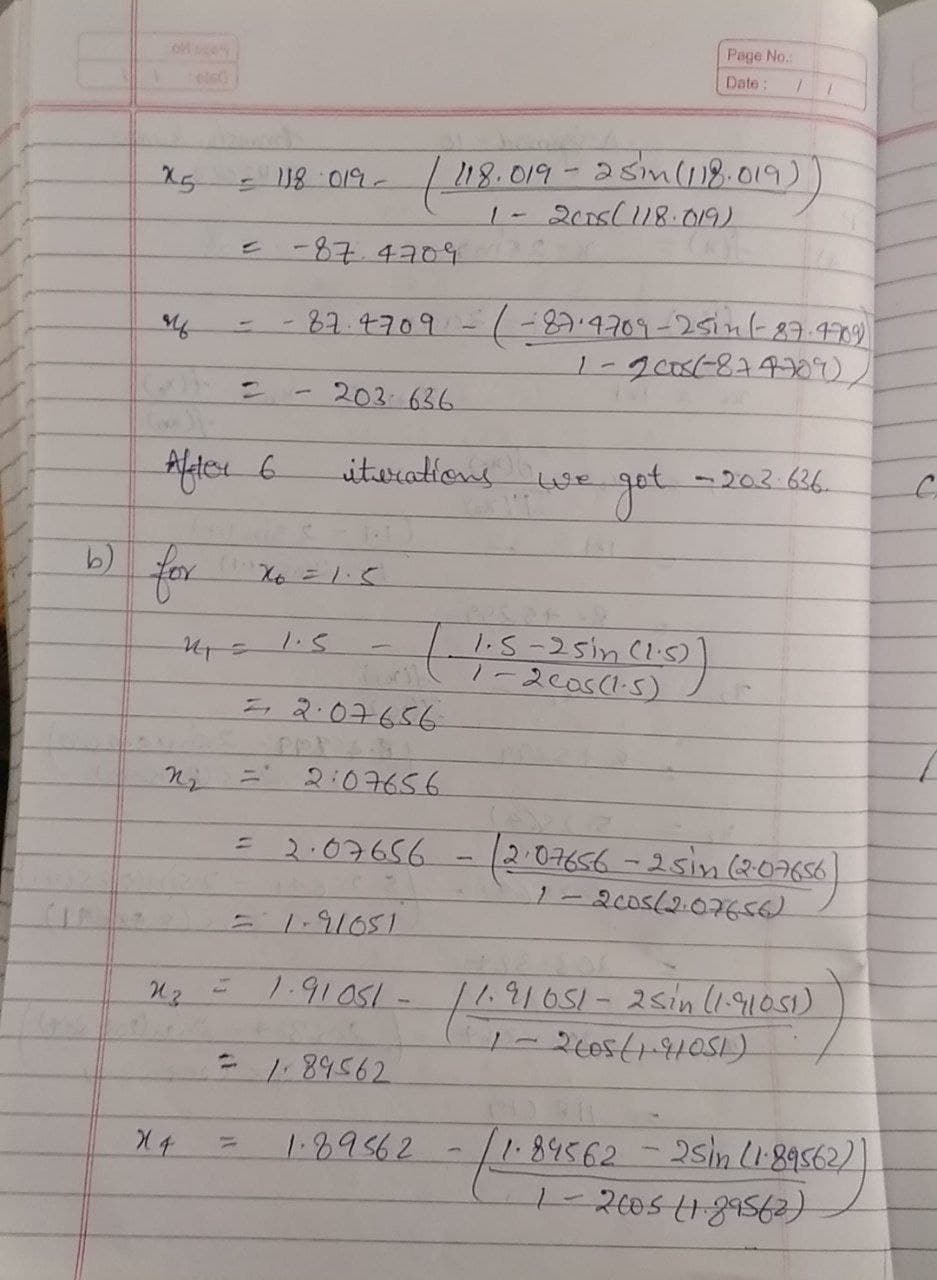 Page No.:
Date : / /
x5 = 118.019 - (118.019 - 2sin(118.019))
1 - 2cos(118.019)
= -87.4709
x6 = -87.4709 - (-87.4709 - 2sin(-87.4709)
1 - 2cos(-87.4709))
= - 203.636
After 6 iterations we got -203.636.
b) for x0 = 1.5
x1 = 1.5 - (1.5 - 2sin(1.5))
1 - 2cos(1.5)
= 2.07656
x2 = 2.07656
= 2.07656 - (2.07656 - 2sin(2.07656)
1 - 2cos(2.07656))
= 1.91051
x3 = 1.91051 - (1.91051 - 2sin(1.91051))
1 - 2cos(1.91051)
= 1.89562
x4 = 1.89562 - (1.89562 - 2sin(1.89562))
1 - 2cos(1.89562)